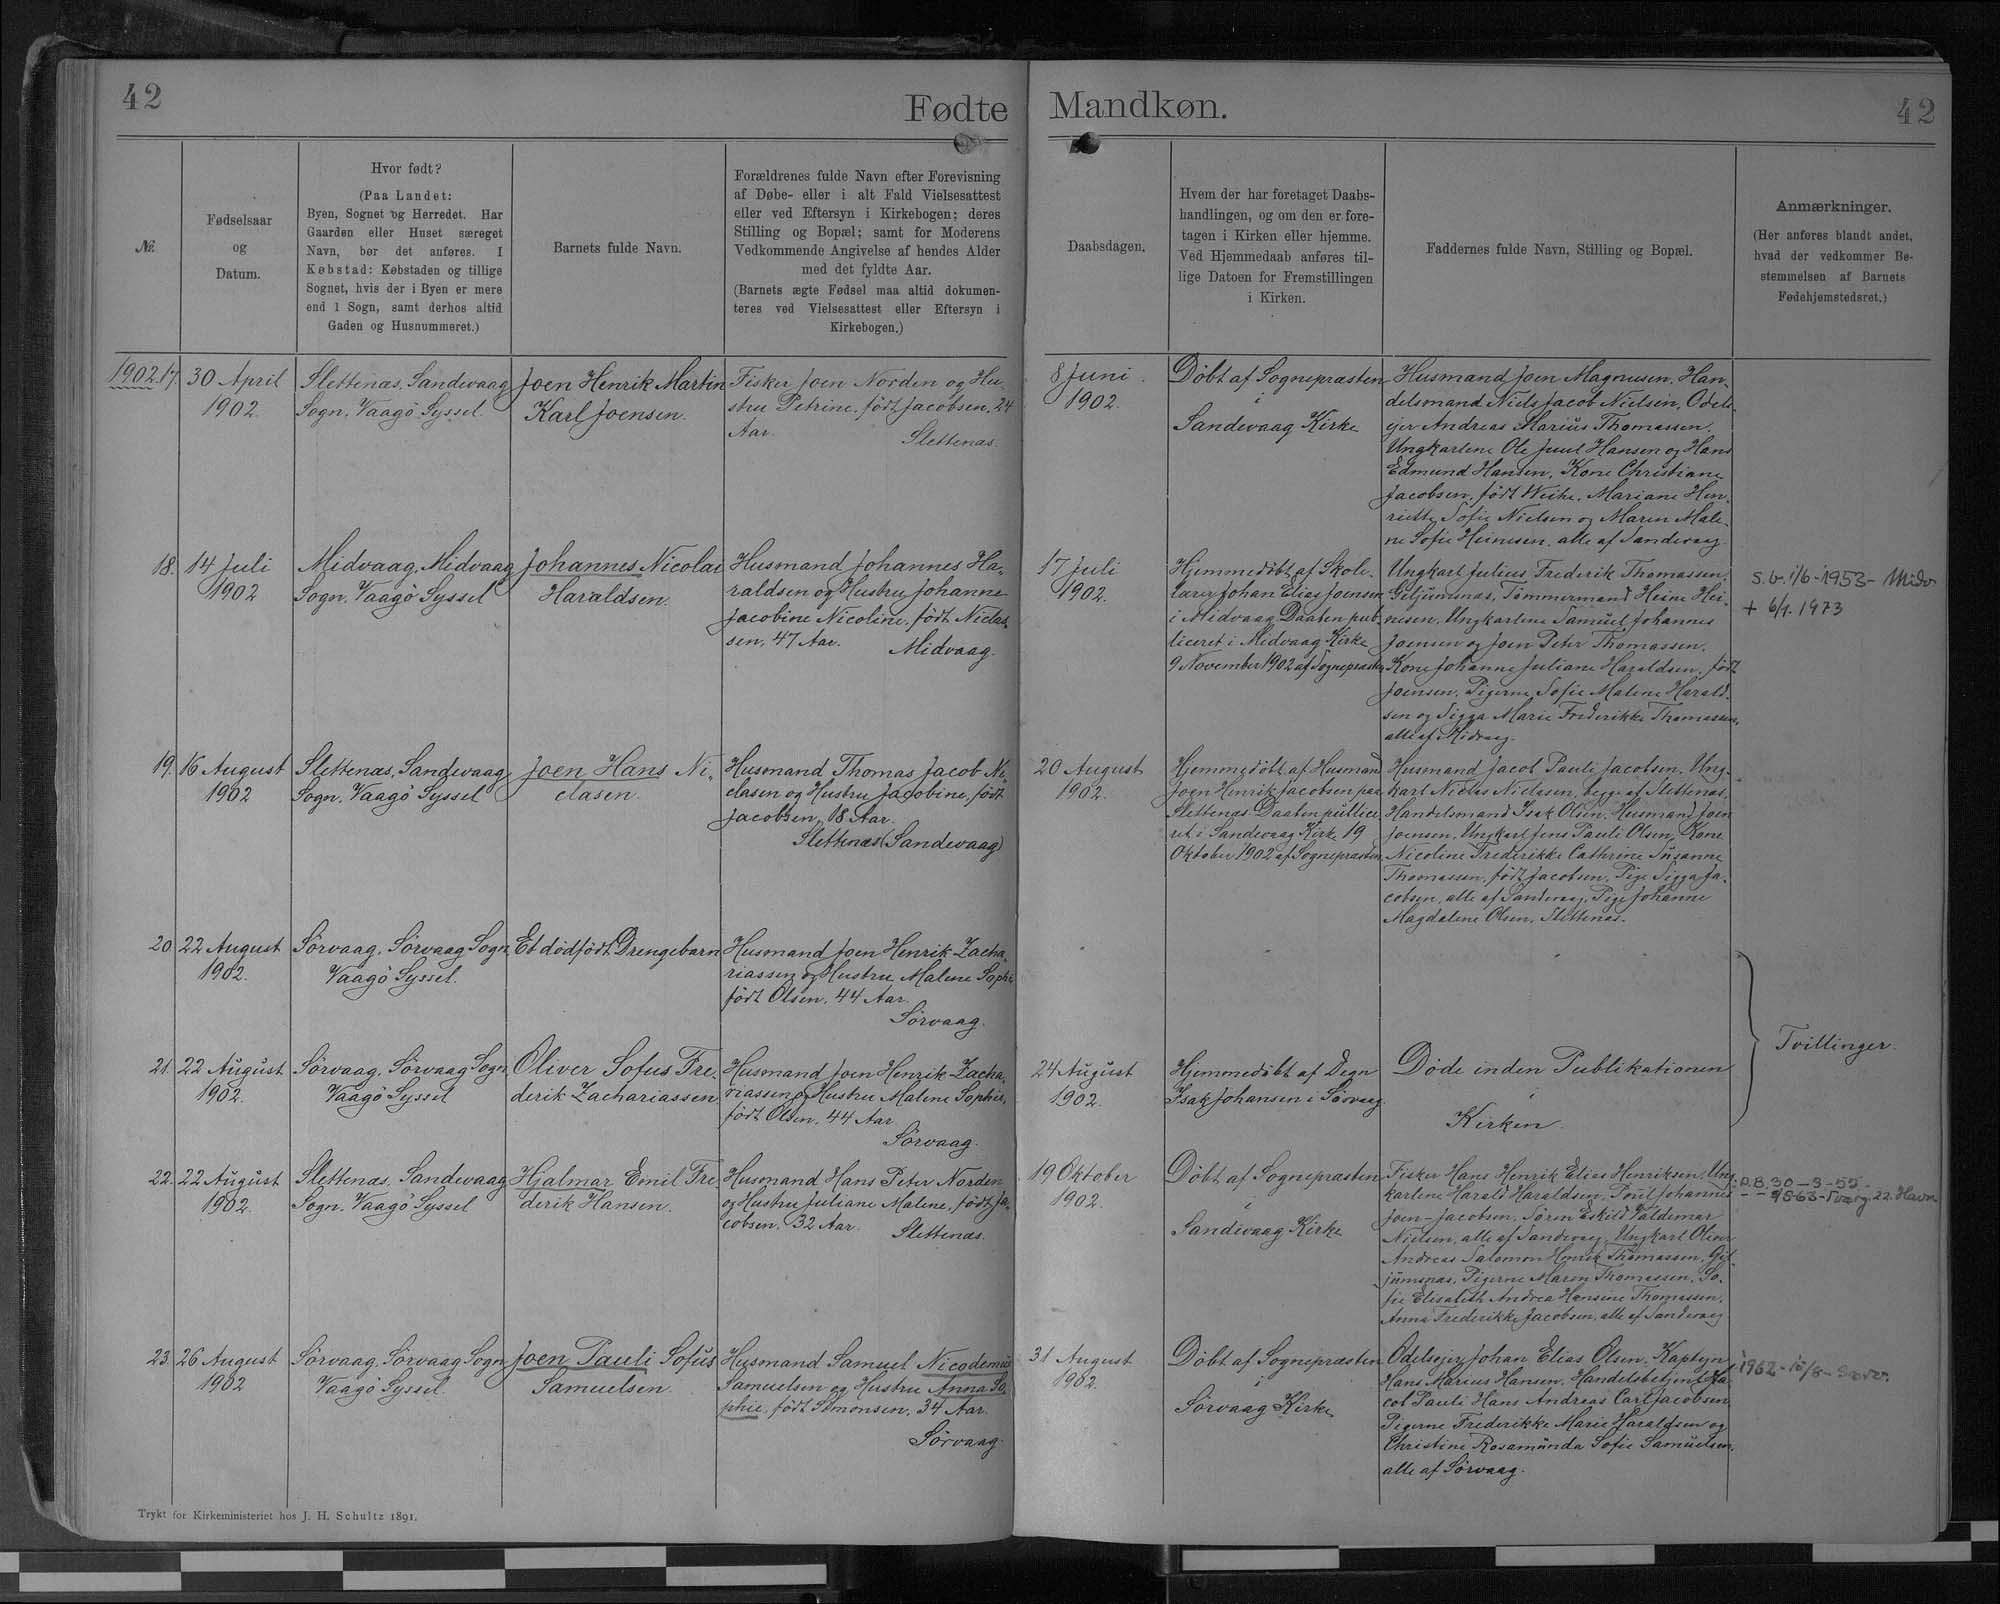 42
Fødte
Mandkøn.
42
№.
Fødselsaar
og
Datum.
Hvor født?
(Paa Landet:
Byen, Sognet og Herredet. Har
Gaarden eller Huset særeget
Navn, bør det anføres. I
Købstad: Købstaden og tillige
Sognet, hvis der i Byen er mere
end 1 Sogn, samt derhos altid
Gaden og Husnummeret.)
Barnets fulde Navn.
Forældrenes fulde Navn efter Forevisning
af Døbe- eller i alt Fald Vielsesattest
eller ved Eftersyn i Kirkebogen; deres
Stilling og Bopæl; samt for Moderens
Vedkommende Angivelse af hendes Alder
med det fyldte Aar.
(Barnets ægte Fødsel maa altid dokumen-
teres ved Vielsesattest eller Eftersyn i
Kirkebogen.)
Daabsdagen.
Hvem der har foretaget Daabs-
handlingen, og om den er fore-
tagen i Kirken eller hjemme.
Ved Hjemmedaab anføres til-
lige Datoen for Fremstillingen
i Kirken.
Faddernes fulde Navn, Stilling og Bopæl.
Anmærkninger.
(Her anføres blandt andet,
hvad der vedkommer Be-
stemmelsen af Barnets
Fødehjemstedsret.)
1902. 17.
30 April
1902.
Slettenæs, Sandevaag
Sogn, Vaagö Syssel.
Joen Henrik Martin
Karl Joensen.
Fisker Joen Norden og Hu-
stru Petrine, født Jacobsen, 24
Aar.
Slettenæs.
8 Juni
1902.
Döbt af Sognepræsten
i
Sandevaag Kirke
Husmand Joen Magnusen, Han-
delsmand Niels Jacob Nielsen, Odels-
ejer Andreas Marius Thomassen,
Ungkarlene Ole Juul Hansen og Hans
Edmund Hansen, Kone Christiane
Jacobsen, født Weihe, Mariane Hen-
riette Sofie Nielsen og Maren Male-
ne Sofie Heinesen, alle af Sandevaag.
18.
14 Juli
1902
Midvaag, Midvaag
Sogn, Vaagö Syssel
Johannes Nicolai
Haraldsen.
Husmand Johannes Ha-
raldsen og Hustru Johanne
Jacobine Nicoline, født Niclas-
sen, 47 Aar.
Midvaag.
17 Juli
1902.
Hjemmedöbt af Skole-
lærer Johan Elias Joensen
i Midvaag. Daaben pub-
liceret i Midvaag Kirke
9 November 1902 af Sognepræsten
Ungkarl Julius Frederik Thomassen,
Giljumsnæs, Tömmermand Heine Hei-
nesen, Ungkarlene Samuel Johannes
Joensen og Joen Peter Thomassen,
Kone Johanne Juliane Haraldsen, født
Joensen, Pigerne Sofie Malene Harald-
sen og Sigga Marie Frederikke Thomassen,
alle af Midvaag.
s.b. 1/6-1953- Midv
+ 6/1. 1973
19.
16 August
1902
Slettenæs, Sandevaag
Sogn, Vaagö Syssel
Joen Hans Ni-
clasen.
Husmand Thomas Jacob Ni-
clasen og Hustru Jacobine, født
Jacobsen, 18 Aar.
Slettenæs (Sandevaag)
20 August
1902.
Hjemmedöbt af Husmand
Joen Henrik Jacobsen paa
Slettenæs. Daaben publice-
ret i Sandevaag Kirke 19
Oktober 1902 af Sognepræsten
Husmand Jacob Pauli Jacobsen, Ung-
karl Niclas Niclasen, begge af Slettenæs,
Handelsmand Isak Olsen, Husmand Joen
Joensen, Ungkarl Jens Pauli Olsen, Kone
Nicoline Frederikke Cathrine Susanne
Thomassen, født Jacobsen, Pige Sigga Ja-
cobsen, alle af Sandevaag, Pige Johanne
Magdalene Olsen, Slettenæs.
20
22 August
1902.
Sörvaag, Sörvaag Sogn
Vaagö Syssel.
Et dödfödt Drengebarn
Husmand Joen Henrik Zacha-
riassen og Hustru Malene Sophie
født Olsen, 44 Aar.
Sörvaag.
Tvillinger.
21.
22 August
1902.
Sörvaag, Sörvaag Sogn
Vaagö Syssel
Oliver Sofus Fre-
derik Zachariassen
Husmand Joen Henrik Zacha-
riassen og Hustru Malene Sophie,
født Olsen, 44 Aar
Sörvaag.
24 August
1902.
Hjemmedöbt af Degn
Isak Johansen i Sörvaag.
Döde inden Publikationen
i
Kirken.
22.
22 August
1902.
Slettenæs, Sandevaag
Sogn, Vaagö Syssel
Hjalmar Emil Fre-
derik Hansen.
Husmand Hans Peter Norden
og Hustru Juliane Malene, født Ja-
cobsen, 32 Aar.
Slettenæs.
19 Oktober
1902.
Döbt af Sognepræsten
i
Sandevaag Kirke
Fisker Hans Henrik Elias Henriksen, Ung-
karlene Harald Haraldsen, Poul Johannes
Joen-Jacobsen, Sören Eskild Valdemar
Nielsen, alle af Sandevaag, Ungkarl Oliver
Andreas Salomon Henrik Thomassen, Gil-
jumsnæs, Pigerne Maren Thomassen, So-
fie Elisabeth Andrea Hansine Thomassen,
Anna Frederikke Jacobsen, alle af Sandevaag
23.
26 August
1902
Sörvaag, Sörvaag Sogn
Vaagö Syssel.
Joen Pauli Sofus
Samuelsen.
Husmand Samuel Nicodemus
Samuelsen og Hustru Anna So-
phie, født Simonsen, 34 Aar.
Sörvaag.
31 August
1902.
Döbt af Sognepræsten
i
Sörvaag Kirke
Odelsejer Johan Elias Olsen, Kaptejn
Hans Marius Hansen, Handelsbetjent Ja-
cob Pauli Hans Andreas Carl Jacobsen,
Pigerne Frederikke Marie Haraldsen og
Christine Rosamunda Sofie Samuelsen,
alle af Sörvaag.
Trykt for Kirkeministeriet hos J. H. Schultz 1891.